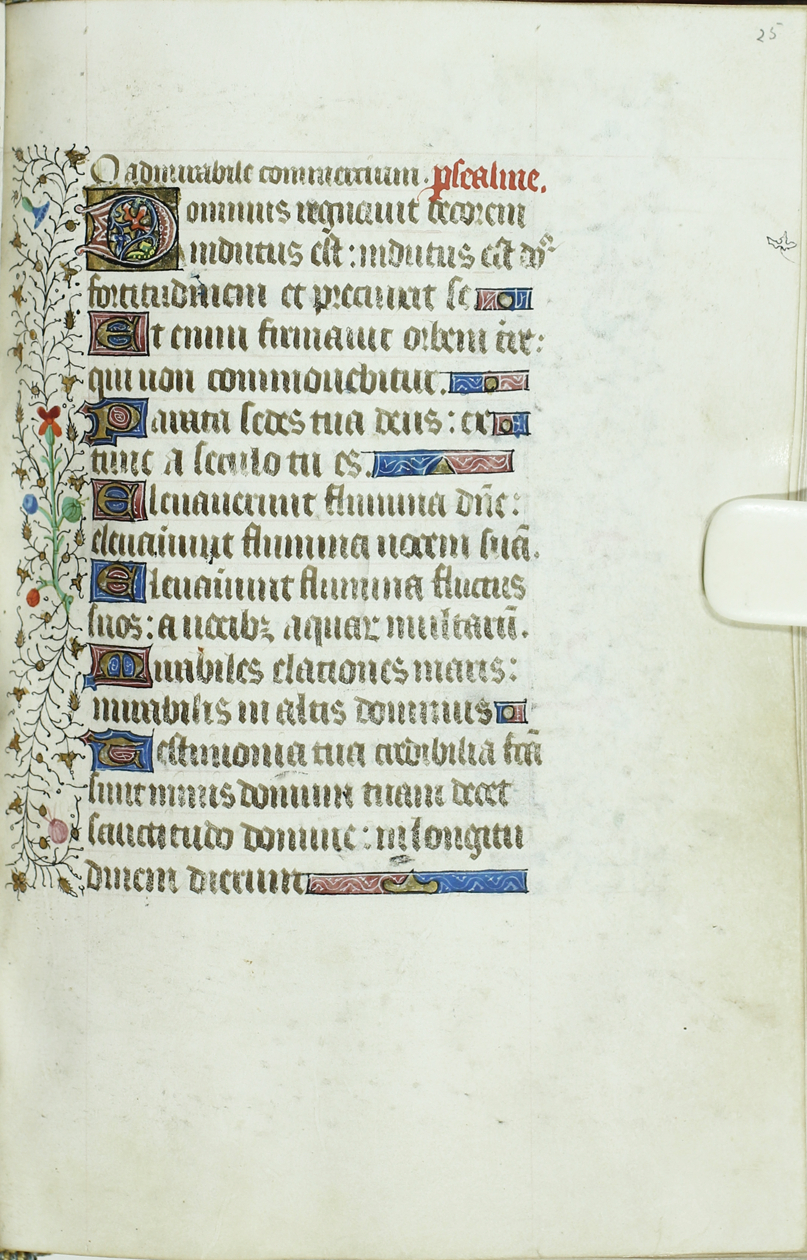 25
O admirabile commercium. psealme.
Dominus regnauit decorem
indutus est : indutus est dns
fortitudinem et precinxit se
Et enim firmauit orbem tre:
qui non commouebitur.
Parata sedes tua deus : ex
tunc a seculo tu es.
Eleuauerunt flumina dne:
eleuauerunt flumina uocem suā.
Eleuauerunt flumina fluctus
suos: a uocibz aquar multarū.
Mirabiles elationes maris:
mirabilis in altis dominus
Testimonia tua credibilia fcā
sunt nimis domum tuam decet
sanctitudo domine : in longitu
dinem dierum